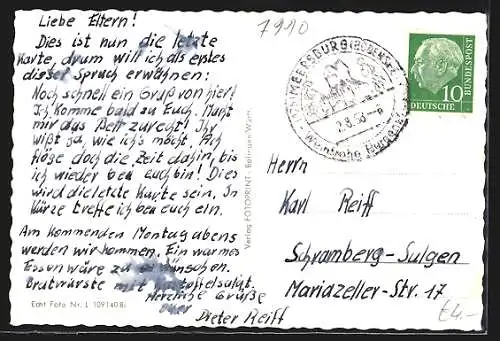 7910
Liebe Eltern!
Dies ist nun die letzte
Karte, drum will ich als erstes
dieser Spruch erwähnen:
Noch schnell ein Gruß von hier!
Ich komme bald zu Euch. Macht
mir das Bett zurecht! Ihr
wißt ja, wie ich's möcht. Ach
flöge doch die Zeit dahin, bis
ich wieder bei euch bin! Dies
wird die letzte Karte sein. In
Kürze treffe ich bei euch ein.
Am Kommenden Montag abends
werden wir kommen. Ein warmes
Essen wäre zu wünschen.
Bratwürste mit Kartoffelsalat.
Herzliche Grüße
Euer
Dieter Reiff
Echt Foto Nr. L 10914086
Verlag FOTOPRINT
MEERSBURG (BODENSEE)
10
DEUTSCHE
BUNDESPOST
Herrn
Karl Reiff
Schramberg-Sulgen
Mariazeller-Str. 17
£4.-